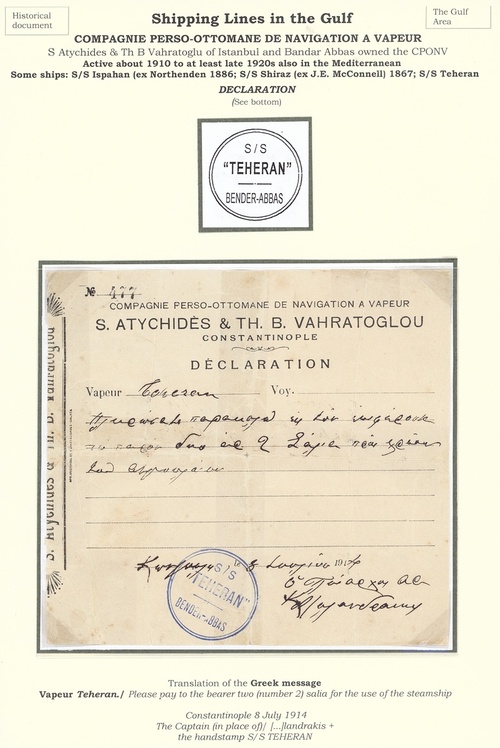 Historical
document
Shipping Lines in the Gulf
The Gulf
Area
COMPAGNIE PERSO-OTTOMANE DE NAVIGATION A VAPEUR
S Atychides & Th B Vahratoglu of Istanbul and Bandar Abbas owned the CPONV
Active about 1910 to at least late 1920s also in the Mediterranean
Some ships: S/S Ispahan (ex Northenden 1886; S/S Shiraz (ex J.E. McConnell) 1867; S/S Teheran
DECLARATION
(See bottom)
S/S
"TEHERAN"
BENDER-ABBAS
№ 477
COMPAGNIE PERSO-OTTOMANE DE NAVIGATION A VAPEUR
S. ATYCHIDÈS & TH. B. VAHRATOGLOU
CONSTANTINOPLE
DÉCLARATION
Vapeur Teheran Voy.
παρακαλώ
δύο 2
S. Atychidès & Th. B. Vahratoglou
8 1914
S/S
"TEHERAN"
BENDER-ABBAS
Translation of the Greek message
Vapeur Teheran./ Please pay to the bearer two (number 2) salia for the use of the steamship
Constantinople 8 July 1914
The Captain (in place of)/ [...]landrakis +
the handstamp S/S TEHERAN